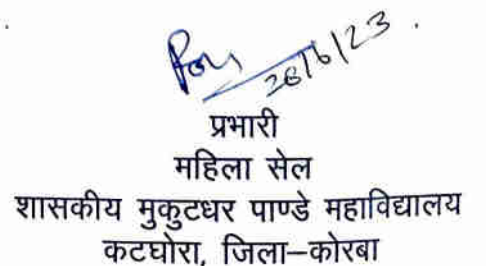 28/6/23
प्रभारी
महिला सेल
शासकीय मुकुटधर पाण्डे महाविद्यालय
कटघोरा, जिला–कोरबा